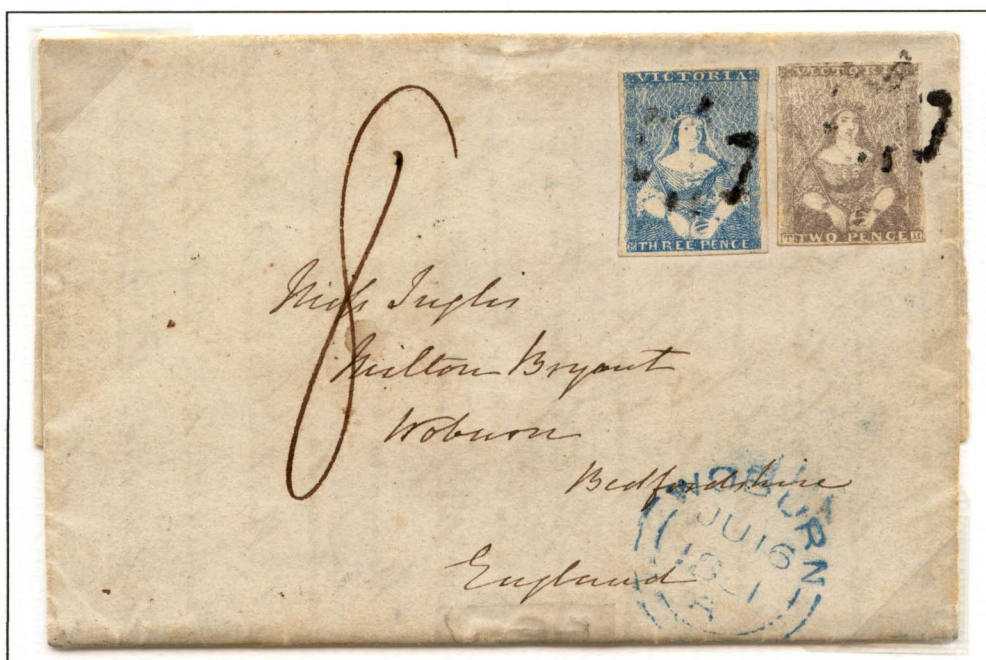 VICTORIA
THREE PENCE
VICTORIA
TWO PENCE
8
Miss Inglis
Milton Bryant
Woburn
Bedfordshire
England
WOBURN
JU 16
1851
A